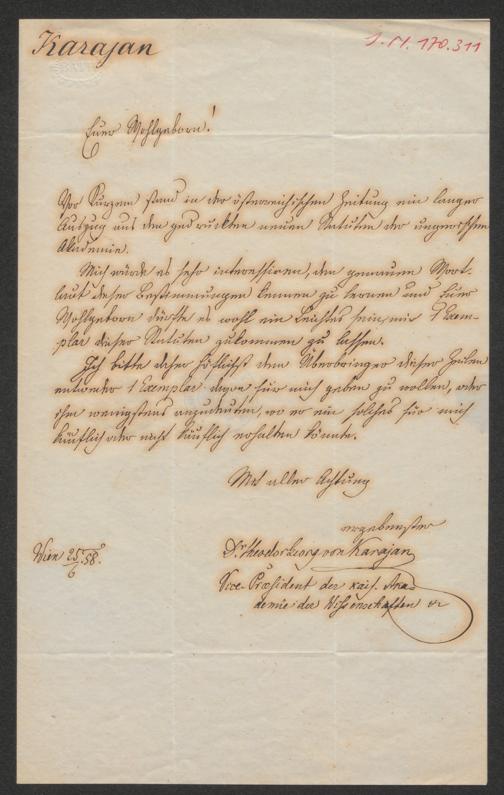 Karajan
I. N. 170.311
Euer Wohlgeborn!
Vor Kurzem stand in der österreichischen Zeitung ein langer
Auszug aus den gedruckten neuen Statuten der ungarischen
Akademie.
Mich würde es sehr interessiren, den genauen Wort-
laut dieser Bestimmungen kennen zu lernen und Euer
Wohlgeborn dürfte es wohl ein Leichtes sein, mir 1 Exem-
plar dieser Statuten zukommen zu lassen.
Ich bitte daher höflichst dem Überbringer dieser Zeilen
entweder 1 Exemplar davon für mich geben zu wollen, oder
ihm wenigstens anzudeuten, wo er ein solches für mich
käuflich oder nicht käuflich erhalten könnte.
Mit aller Achtung
ergebenster
Dr Theodor Georg von Karajan
Wien 25/6 58.
Vice-Præsident der kais. Aka-
demie der Wissenschaften